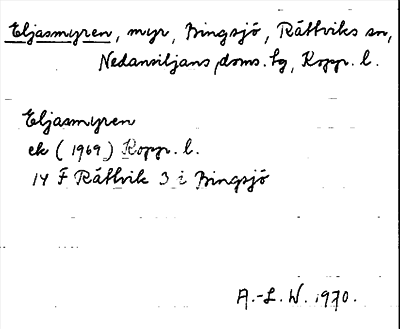 Eljasmyren, myr, Bingsjö, Rättviks sn,
Nedansiljans doms. tg, Kopp. l.
Eljasmyren
ek (1969) Kopp. l.
14 F Rättvik 3 i Bingsjö
A.-L. W. 1970.